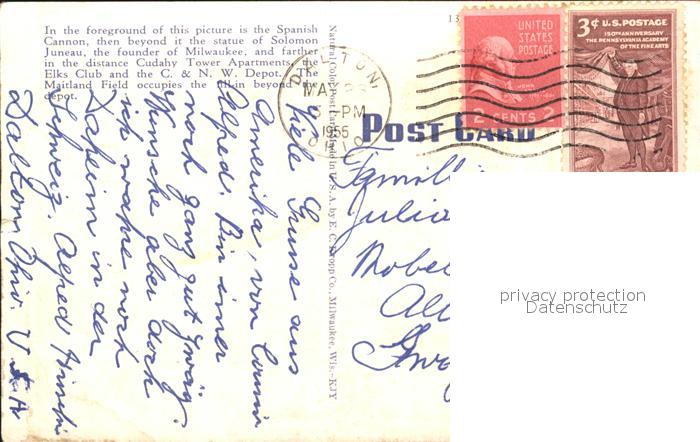 In the foreground of this picture is the Spanish
Cannon, then beyond it the statue of Solomon
Juneau, the founder of Milwaukee, and farther
in the distance Cudahy Tower Apartments, the
Elks Club and the C. & N. W. Depot. The
Maitland Field occupies the fill in beyond the
depot.
Natural Color Post Card Made in U. S. A. by E. C. Kropp Co., Milwaukee, Wis.-KJY
13
DALTON,
PM
1955
OHIO
UNITED
STATES
POSTAGE
2 CENTS 2
3¢ U.S. POSTAGE
150TH ANNIVERSARY
THE PENNSYLVANIA ACADEMY
OF THE FINE ARTS
POST CARD
Viele Grüsse aus
Amerika, von Cousin
Alfred. Bin imer
noch ganz gut zwäg.
Wünsche aber doch
ich wäre noch
Daheim in der
Schweiz. Alfred
Dalton Ohio U.S.A.
Famili
Julia
Privacy protection
Datenschutz